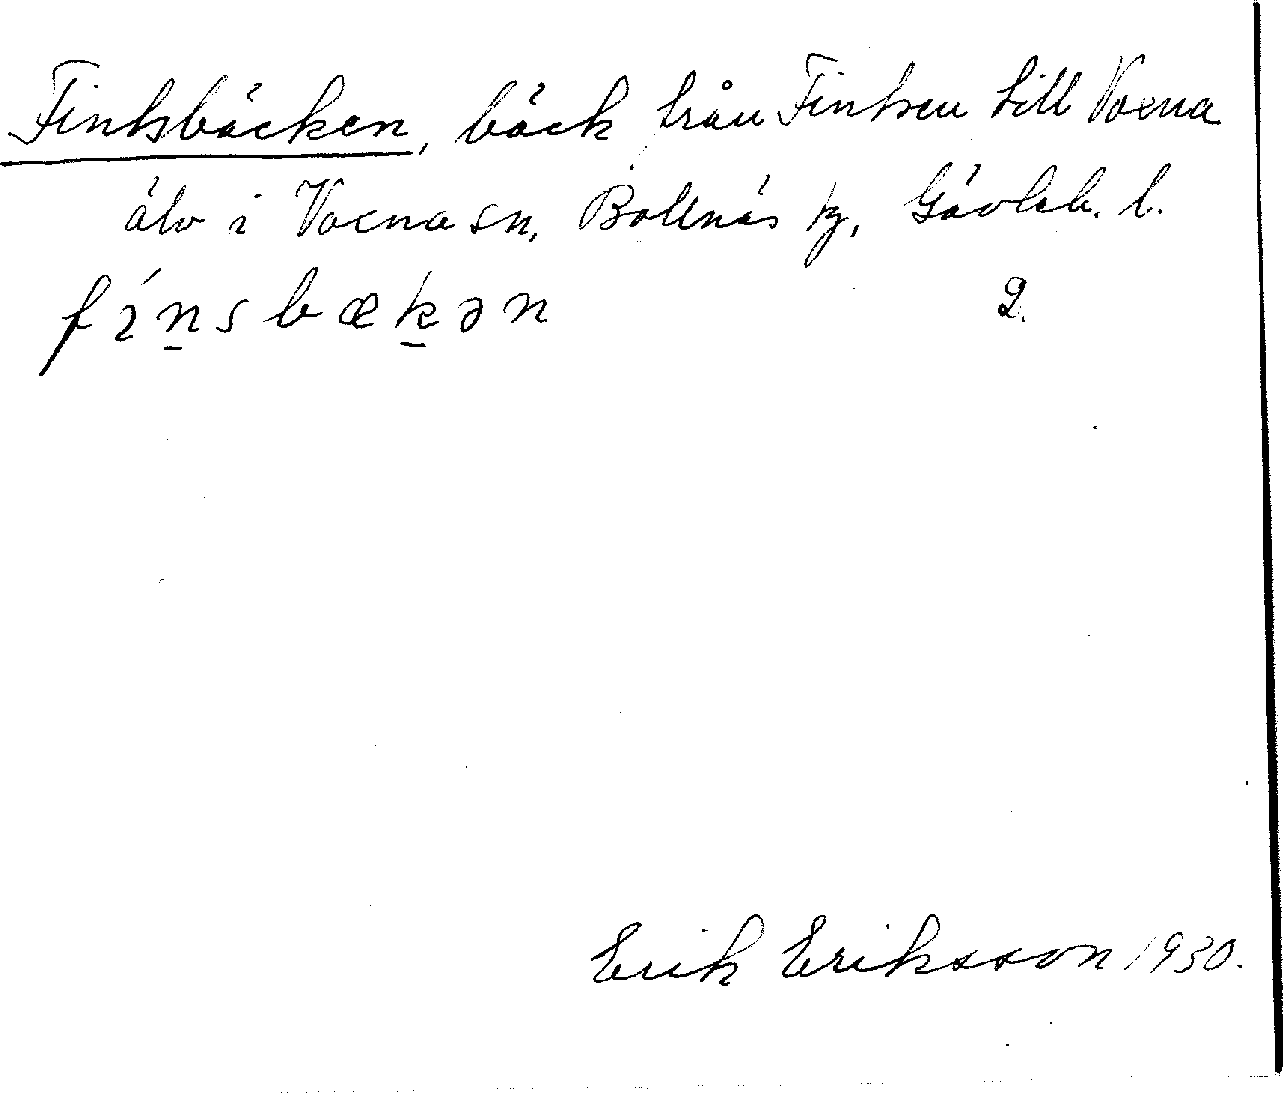 Finksbäcken, bäck från Finksen till Voxna
älv i Voxna sn, Bollnäs tg, Gävleb. l.
fínsbækən 2.
Erik Eriksson 1930.